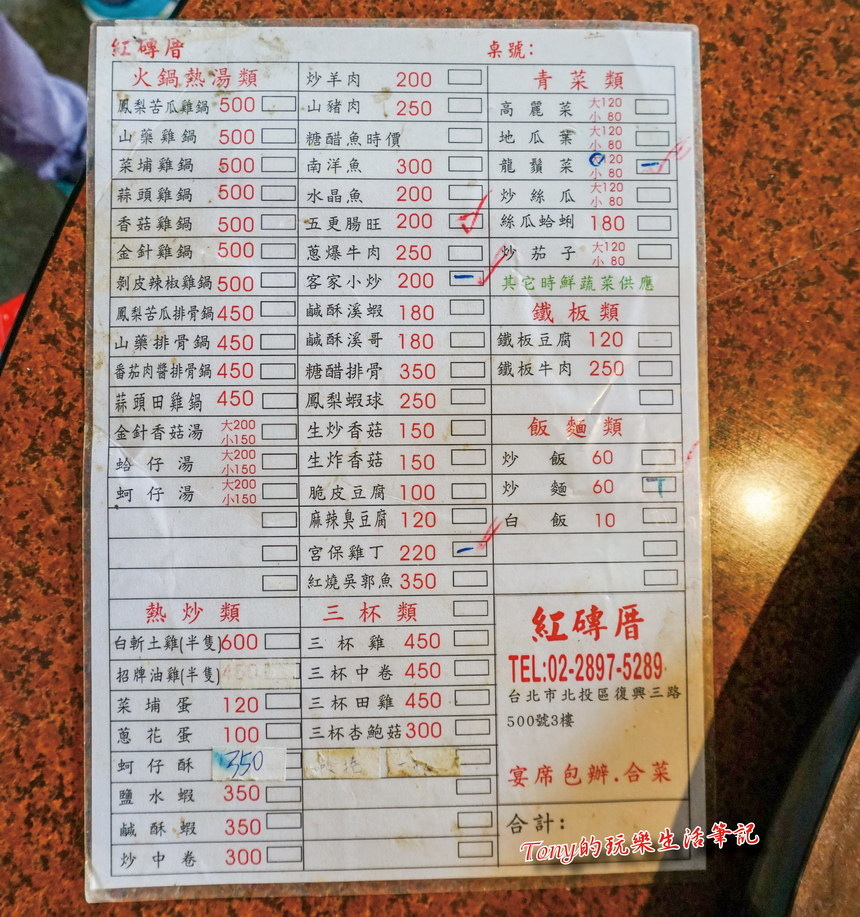 紅磚厝
桌號：
火鍋熱湯類
鳳梨苦瓜雞鍋 500
山藥雞鍋 500
菜埔雞鍋 500
蒜頭雞鍋 500
香菇雞鍋 500
金針雞鍋 500
剝皮辣椒雞鍋 500
鳳梨苦瓜排骨鍋 450
山藥排骨鍋 450
番茄肉醬排骨鍋 450
蒜頭田雞鍋 450
金針香菇湯 大200 小150
蛤仔湯 大200 小150
蚵仔湯 大200 小150
熱炒類
白斬土雞(半隻) 600
招牌油雞(半隻) 450
菜埔蛋 120
蔥花蛋 100
蚵仔酥 350
鹽水蝦 350
鹹酥蝦 350
炒中卷 300
炒羊肉 200
山豬肉 250
糖醋魚時價
南洋魚 300
水晶魚 200
五更腸旺 200
蔥爆牛肉 250
客家小炒 200
鹹酥溪蝦 180
鹹酥溪哥 180
糖醋排骨 350
鳳梨蝦球 250
生炒香菇 150
生炸香菇 150
脆皮豆腐 100
麻辣臭豆腐 120
宮保雞丁 220
紅燒吳郭魚 350
三杯類
三杯雞 450
三杯中卷 450
三杯田雞 450
三杯杏鮑菇 300
青菜類
高麗菜 大120 小80
地瓜葉 大120 小80
龍鬚菜 大120 小80
炒絲瓜 大120 小80
絲瓜蛤蜊 180
炒茄子 大120 小80
其它時鮮蔬菜供應
鐵板類
鐵板豆腐 120
鐵板牛肉 250
飯麵類
炒飯 60
炒麵 60
白飯 10
紅磚厝
TEL:02-2897-5289
台北市北投區復興三路
500號3樓
宴席包辦.合菜
合計：
Tony的玩樂生活筆記